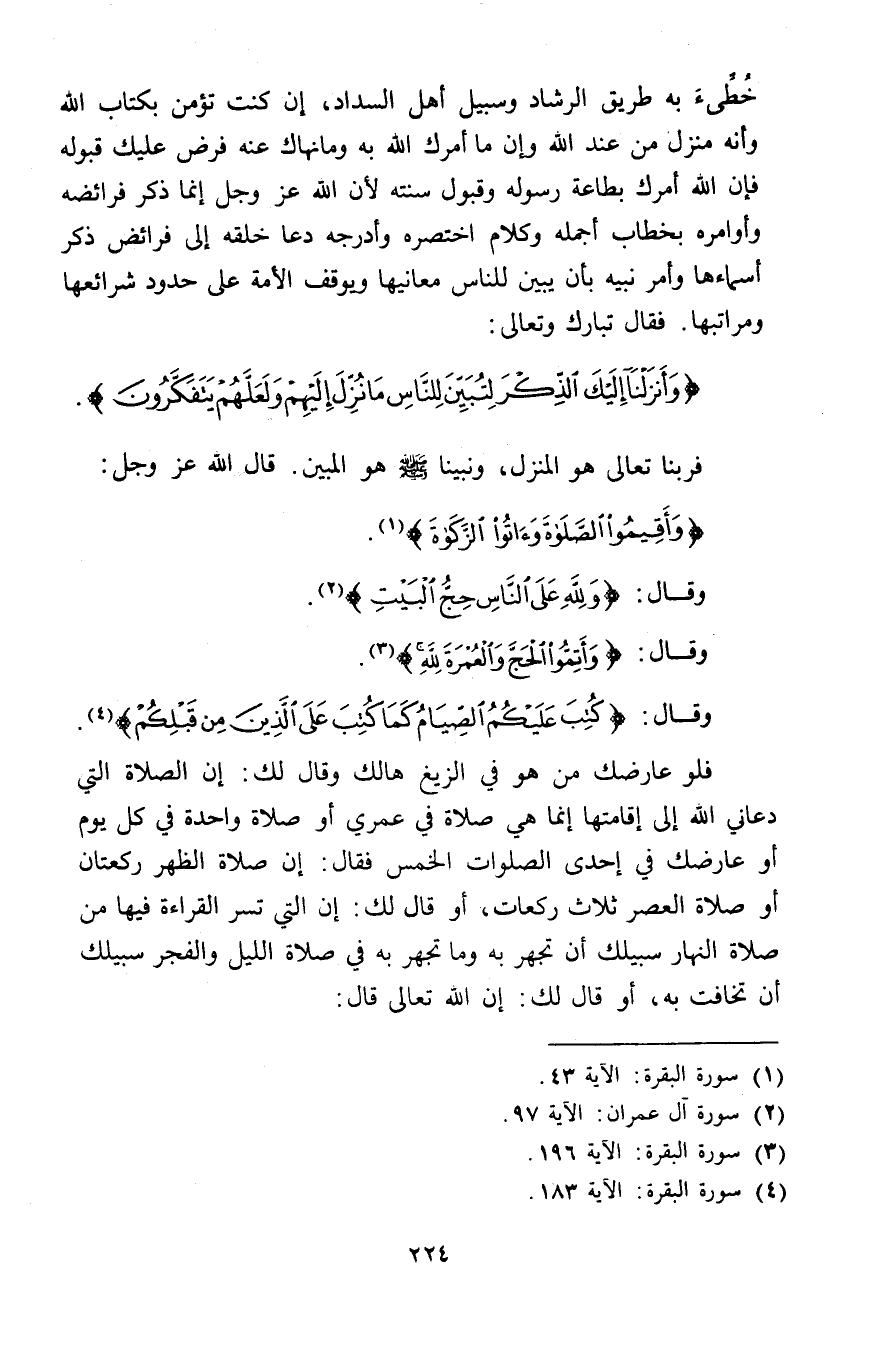 خُطِّىءَ به طريق الرشاد وسبيل أهل السداد، إن كنت تؤمن بكتاب الله
وأنه منزل من عند الله وإن ما أمرك الله به ومانهاك عنه فرض عليك قبوله
فإن الله أمرك بطاعة رسوله وقبول سنته لأن الله عز وجل إنما ذكر فرائضه
وأوامره بخطاب أجمله وكلام اختصره وأدرجه دعا خلقه إلى فرائض ذكر
أسماءها وأمر نبيه بأن يبين للناس معانيها ويوقف الأمة على حدود شرائعها
ومراتبها. فقال تبارك وتعالى:
﴿وَأَنزَلْنَآ إِلَيْكَ ٱلذِّكْرَ لِتُبَيِّنَ لِلنَّاسِ مَا نُزِّلَ إِلَيْهِمْ وَلَعَلَّهُمْ يَتَفَكَّرُونَ﴾.
فربنا تعالى هو المنزل، ونبينا ﷺ هو المبين. قال الله عز وجل:
﴿وَأَقِيمُواْ ٱلصَّلَوٰةَ وَءَاتُواْ ٱلزَّكَوٰةَ﴾(١).
وقـــال: ﴿وَلِلَّهِ عَلَى ٱلنَّاسِ حِجُّ ٱلْبَيْتِ﴾(٢).
وقـــال: ﴿وَأَتِمُّواْ ٱلْحَجَّ وَٱلْعُمْرَةَ لِلَّهِ ۚ﴾(٣).
وقـــال: ﴿كُتِبَ عَلَيْكُمُ ٱلصِّيَامُ كَمَا كُتِبَ عَلَى ٱلَّذِينَ مِن قَبْلِكُمْ﴾(٤).
فلو عارضك من هو في الزيغ هالك وقال لك: إن الصلاة التي
دعاني الله إلى إقامتها إنما هي صلاة في عمري أو صلاة واحدة في كل يوم
أو عارضك في إحدى الصلوات الخمس فقال: إن صلاة الظهر ركعتان
أو صلاة العصر ثلاث ركعات، أو قال لك: إن التي تسر القراءة فيها من
صلاة النهار سبيلك أن تجهر به وما تجهر به في صلاة الليل والفجر سبيلك
أن تخافت به، أو قال لك: إن الله تعالى قال:
(١) سورة البقرة: الآية ٤٣.
(٢) سورة آل عمران: الآية ٩٧.
(٣) سورة البقرة: الآية ١٩٦.
(٤) سورة البقرة: الآية ١٨٣.
٢٢٤